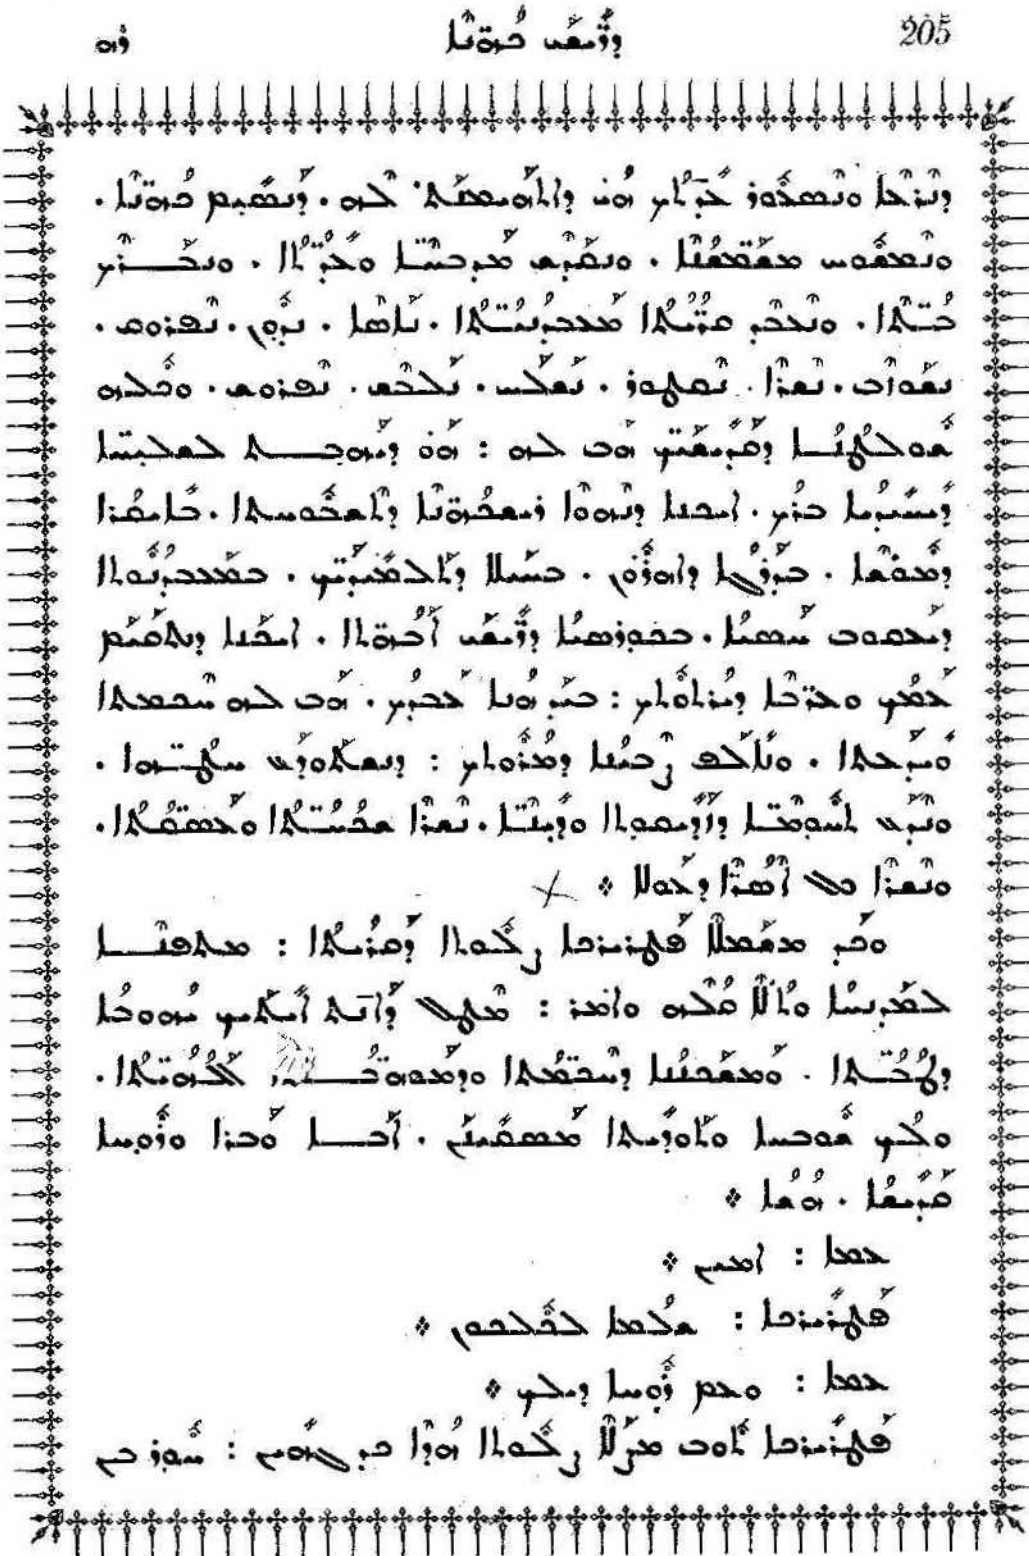 205 ܕܪ̈ܝܫܝ ܟܗ̈ܢܐ ܪܗ
ܕܢܪܥܐ ܘܢܣܥܘܪ ܥܕܬܟ ܗܝ ܕܐܬܐܘܝܡܢܬ ܠܗ. ܕܢܣܝܡ ܟܗ̈ܢܐ.
ܘܢܡܫܘܚ ܡܫܡ̈ܫܢܐ. ܘܢܩܕܫ ܡܕܒ̈ܚܐ ܘܥܕ̈ܬܐ. ܘܢܒܪܟ
ܒ̈ܬܐ. ܘܢܥܒܕ ܩܪ̈ܝܬܐ ܡܥܒܕܢܝ̈ܬܐ. ܢܐܣܐ. ܢܕܘܢ. ܢܦܪܘܩ.
ܢܫܘܙܒ. ܢܫܪܐ. ܢܩܛܘܪ. ܢܫܠܚ. ܢܠܒܫ. ܢܦܪܘܫ. ܘܟܠܗ
ܫܘܠܛܢܐ ܕܩܕܝܫܝ̈ܟ ܗܒ ܠܗ: ܗܘ ܕܝܗܒܬ ܠܫܠܝ̈ܚܐ
ܕܝܚܝܕܝܐ ܒܪܟ. ܐܝܟܢܐ ܕܢܗܘܐ ܪܝܫܟܗ̈ܢܐ ܕܬܫܒܘܚܬܐ. ܒܐܝܩܪܐ
ܕܡܘܫܐ. ܒܕܪܓܐ ܕܐܗܪܘܢ. ܒܚܝܠܐ ܕܬܠܡܝܕܝ̈ܟ. ܒܡܥܒܕܢܘܬܐ
ܕܝܥܩܘܒ ܚܣܝܐ. ܒܟܘܪܣܝܐ ܕܪ̈ܝܫܝ ܐܒܗ̈ܬܐ. ܐܝܟܢܐ ܕܢܬܩܝܡ
ܥܡܟ ܘܥܪ̈ܒܐ ܕܝܪܬܘܬܟ: ܒܝܕ ܗܢܐ ܥܒܕܟ. ܗܒ ܠܗ ܚܟܡܬܐ
ܘܝܕܥܬܐ. ܘܢܐܠܦ ܨܒܝܢܐ ܕܡܪܘܬܟ: ܕܢܫܬܘܕܥ ܚܛܗ̈ܐ.
ܘܢܕܥ ܬܚܘܡ̈ܐ ܕܙܕܝܩܘܬܐ ܘܕܝ̈ܢܐ. ܢܫܪܐ ܫܟܝܚ̈ܬܐ ܘܥܣܩ̈ܬܐ.
ܘܢܫܪܐ ܟܠ ܐܣܪ̈ܐ ܕܥܘܠܐ ܀
ܘܟܕ ܡܫܡܠܐ ܦܛܪܝܪܟܐ ܨܠܘܬܐ ܕܩܪܝܬܐ: ܡܬܦܢܐ
ܠܡܕܢܚܐ ܘܬܠܐ ܩܠܗ ܘܐܡܪ: ܡܛܠ ܕܐܢܬ ܐܝܬܝܟ ܝܗܘܒܐ
ܕܛܒ̈ܬܐ. ܘܡܫܟܢܢܐ ܕܚܟ̈ܡܬܐ ܘܕܡܘܗ̈ܒܬܐ ܐܠܗܝ̈ܬܐ.
ܘܠܟ ܫܘܒܚܐ ܘܬܘܕܝܬܐ ܡܣܩܝܢܢ. ܐܒܐ ܘܒܪܐ ܘܪܘܚܐ
ܩܕܝܫܐ. ܗܫܐ ܀
ܥܡܐ: ܐܡܝܢ ܀
ܦܛܪܝܪܟܐ: ܫܠܡܐ ܠܟܠܟܘܢ ܀
ܥܡܐ: ܘܥܡ ܪܘܚܐ ܕܝܠܟ ܀
ܦܛܪܝܪܟܐ ܬܘܒ ܡܨܠܐ ܨܠܘܬܐ ܗܕܐ ܟܕ ܓܗܝܢ: ܚܘܪ ܒܢ